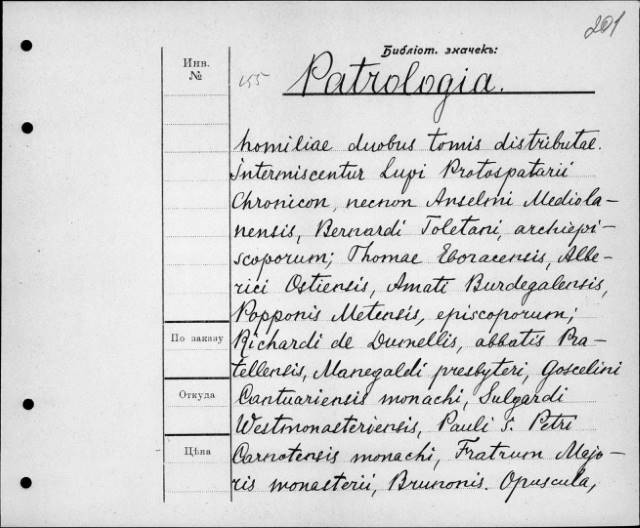 201
Библіот. значекъ:
Инв.
№
155
Patrologia.
homiliae duobus tomis distributae.
Intermiscentur Lupi Protospatarii
Chronicon, necnon Anselmi Mediola-
nensis, Bernardi Toletani, archiepi-
scoporum; Thomae Eboracensis, Albe-
rici Ostiensis, Amati Burdegalensis,
Popponis Metensis, episcoporum;
По заказу
Richardi de Dumellis, abbatis Pra-
tellensis, Manegaldi presbyteri, Goscelini
Откуда
Cantuariensis monachi, Sulgardi
Westmonasteriensis, Pauli S. Petri
Цѣна
Carnotensis monachi, Fratrum Majo-
ris monasterii, Brunonis. Opuscula,